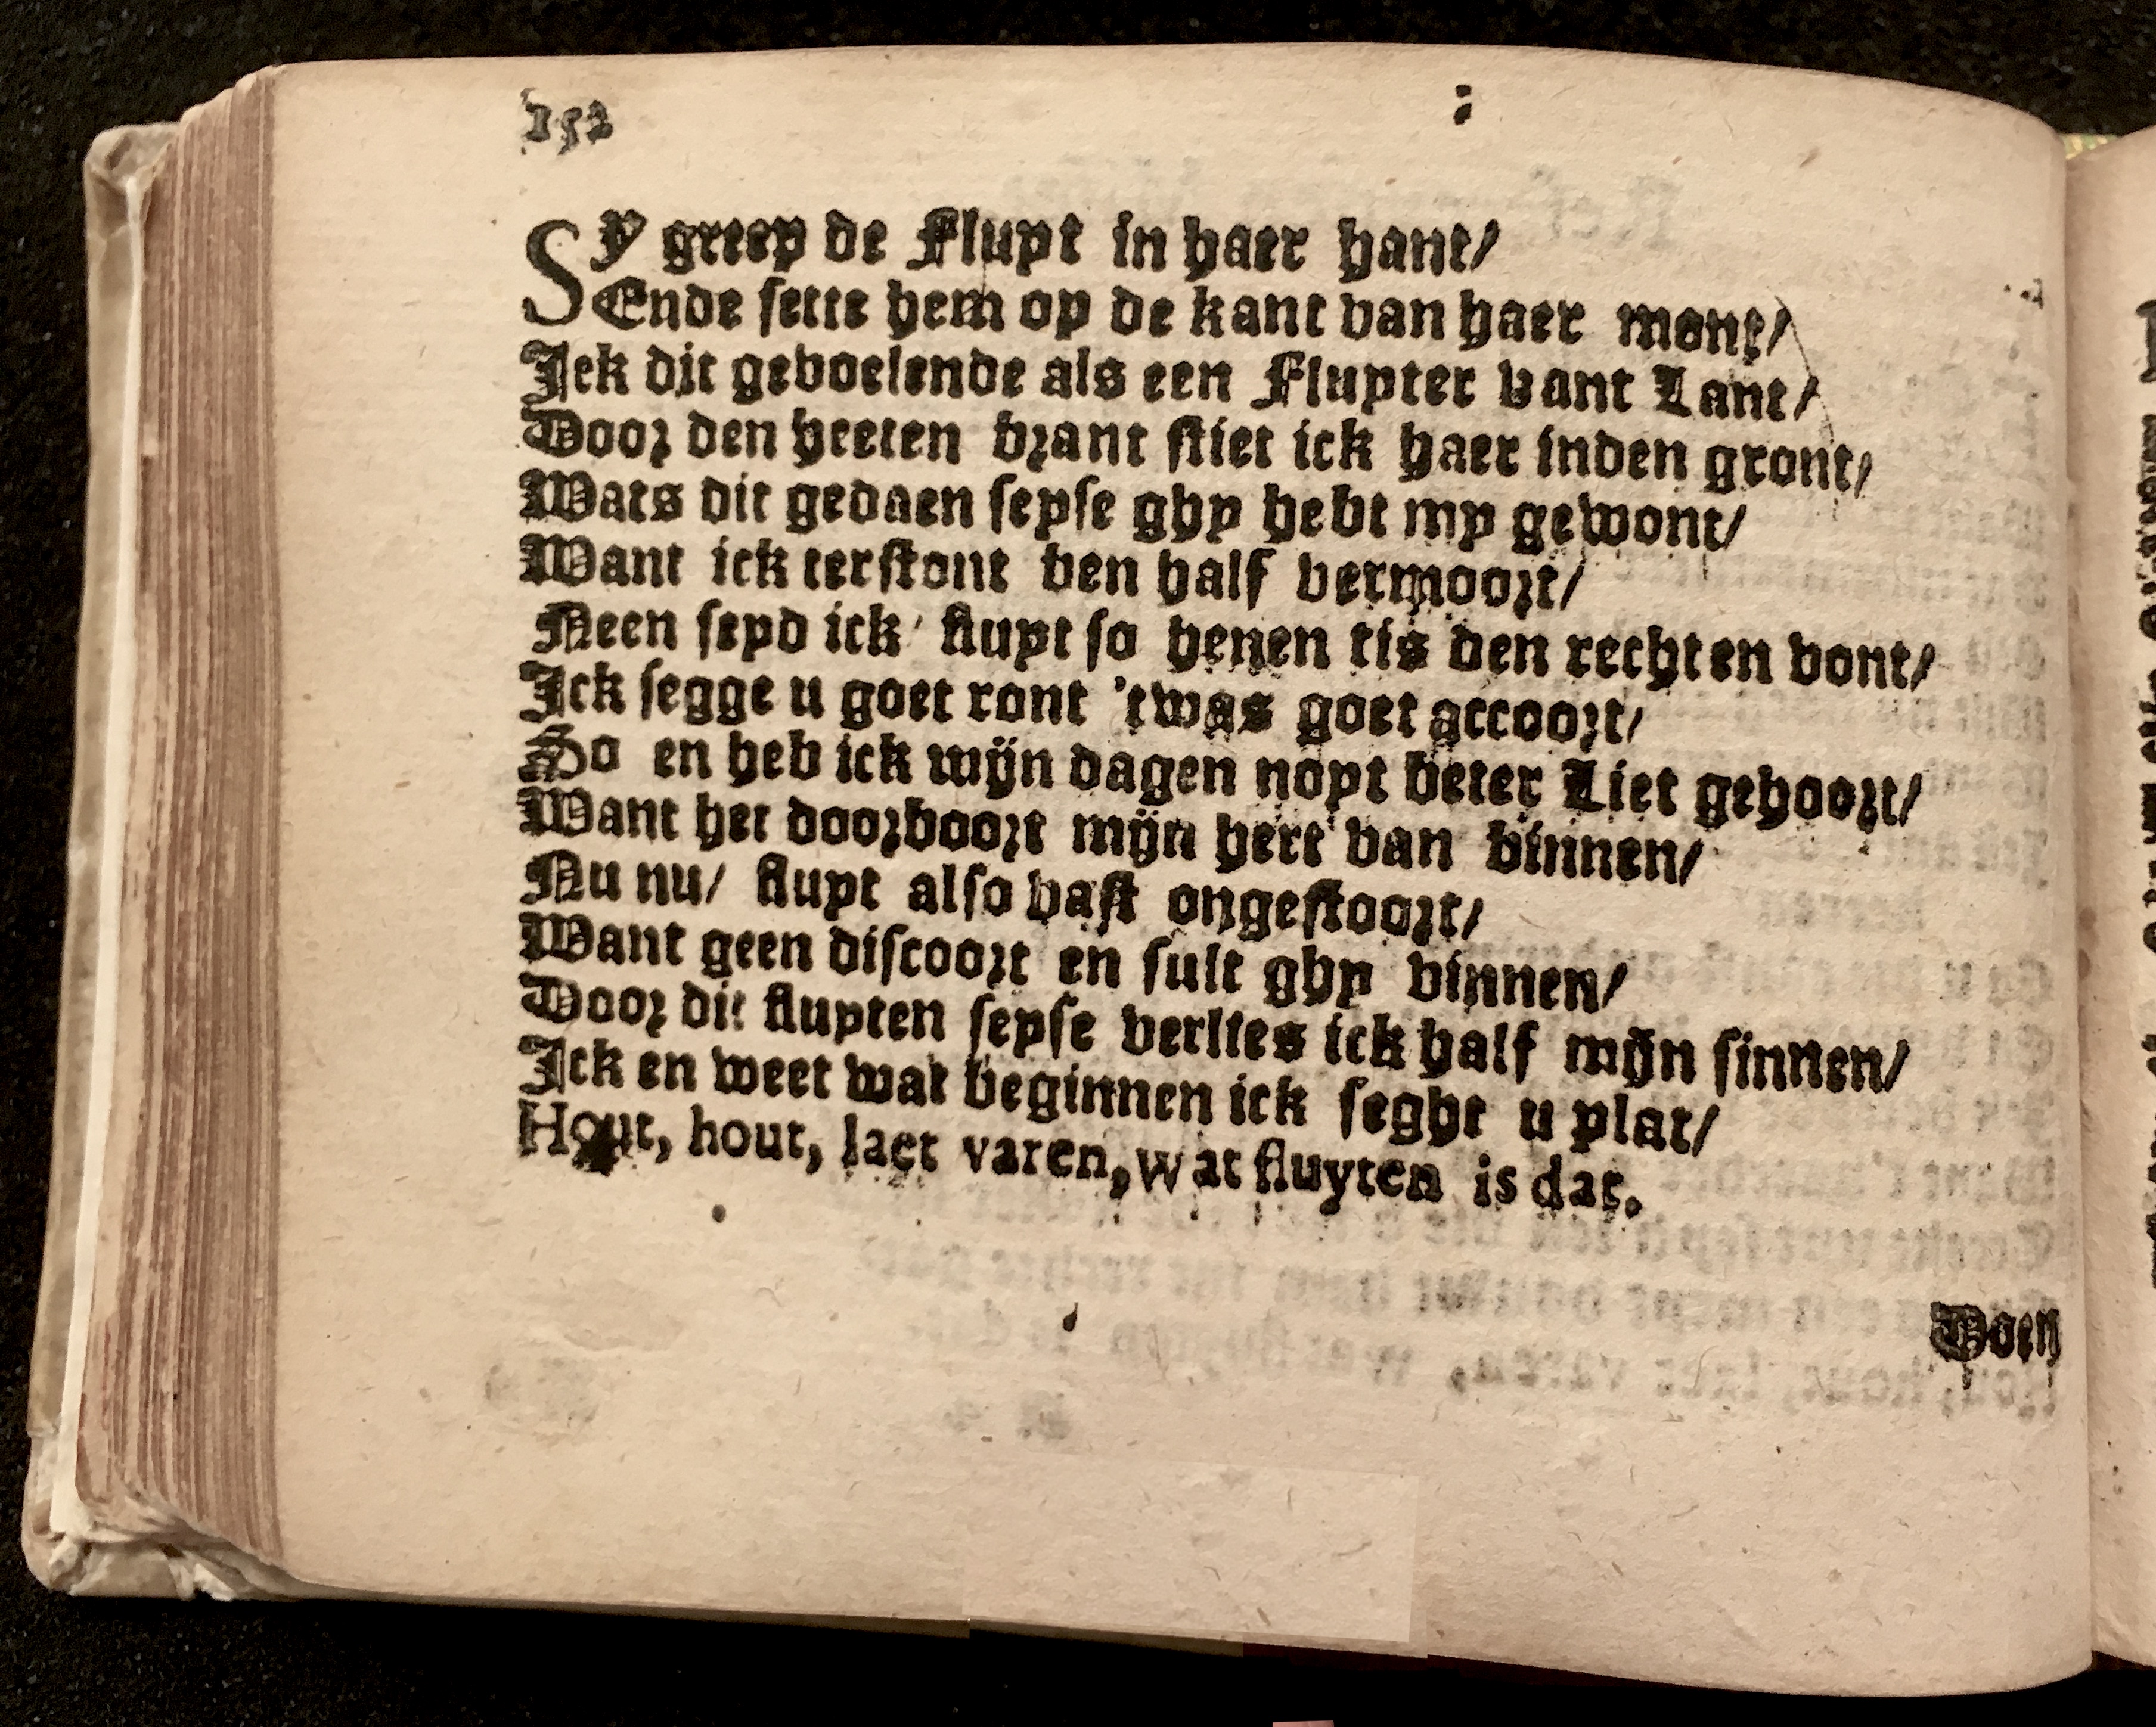 152
Sy greep de Fluyt in haer hant/
Ende sette hem op de kant van haer mont/
Ick dit gevoelende als een Fluyter vant Lant/
Door den heeten brant stiet ick haer inden gront/
Wats dit gedaen seyse ghy hebt my gewont/
Want ick terstont ben half vermoort/
Neen seyd ick fluyt so henen tis den rechten vont/
Ick segge u goet ront 'twas goet accoort/
So en heb ick mijn dagen noyt beter Liet gehoort/
Want het doorboort mijn hert van binnen/
Nu nu/ fluyt also vast ongestoort/
Want geen discoort en sult ghy vinnen/
Door dit fluyten seyse verlies ick half mijn sinnen/
Ick en weet wat beginnen ick seght u plat/
Hout, hout, laet varen, wat fluyten is dat.
Doen